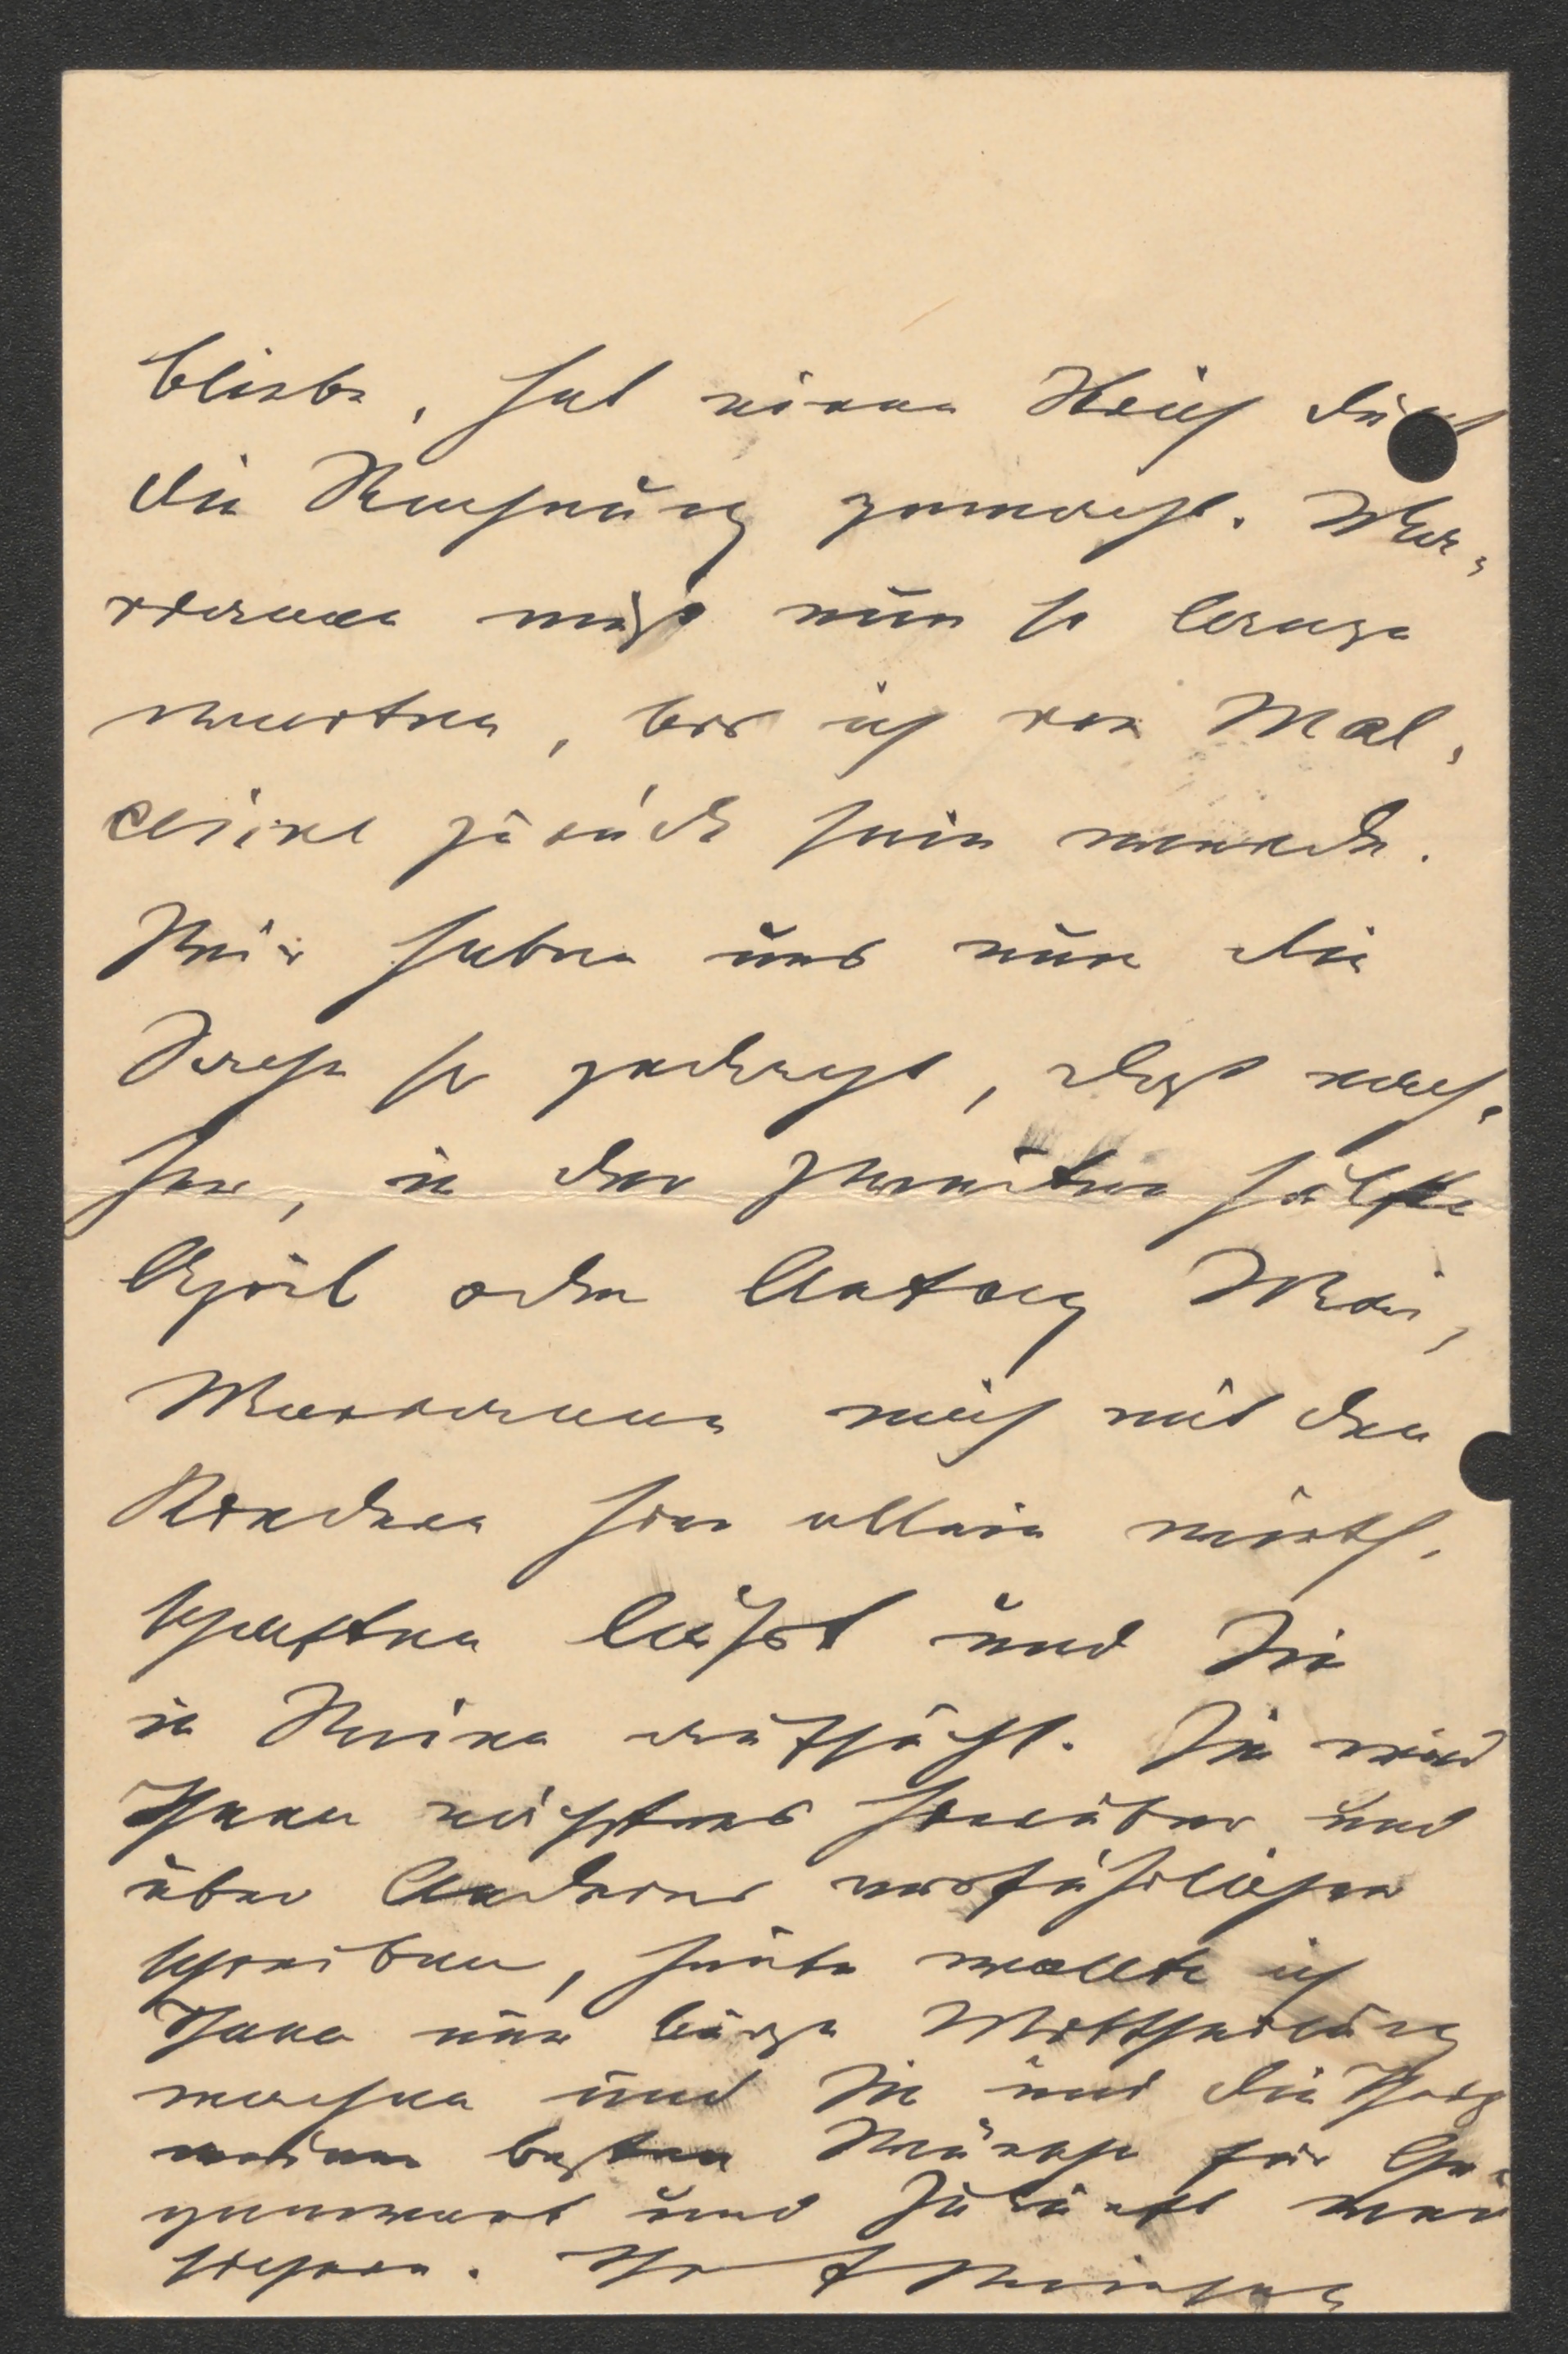 bliebe, hat einen Strich durch
die Rechnung gemacht. Mar-
rianne muß nun so lange
warten, bis ich von Mal-
cesine zurück sein werde.
Wir haben uns nun die
Sache so gedacht, daß nach-
her, in der zweiten Hälfte
April oder Anfang Mai,
Marianne mich mit den
Kindern hier allein wirth-
schaften läßt und Sie
in Meina aufsucht. Sie wird
Ihnen nächstens hierüber und
über Anderes ausführlicher
schreiben, heute wollte ich
Ihnen nur kurze Mittheilung
machen und Sie und die Ihrig
meiner besten Wünsche für Ge-
genwart und Zukunft ver
sichern. Ihr